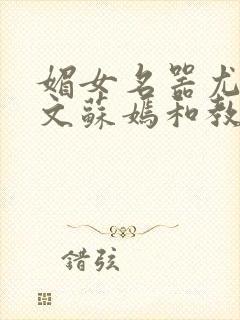 媚女名器尤
文蘇媽和教
錯弦